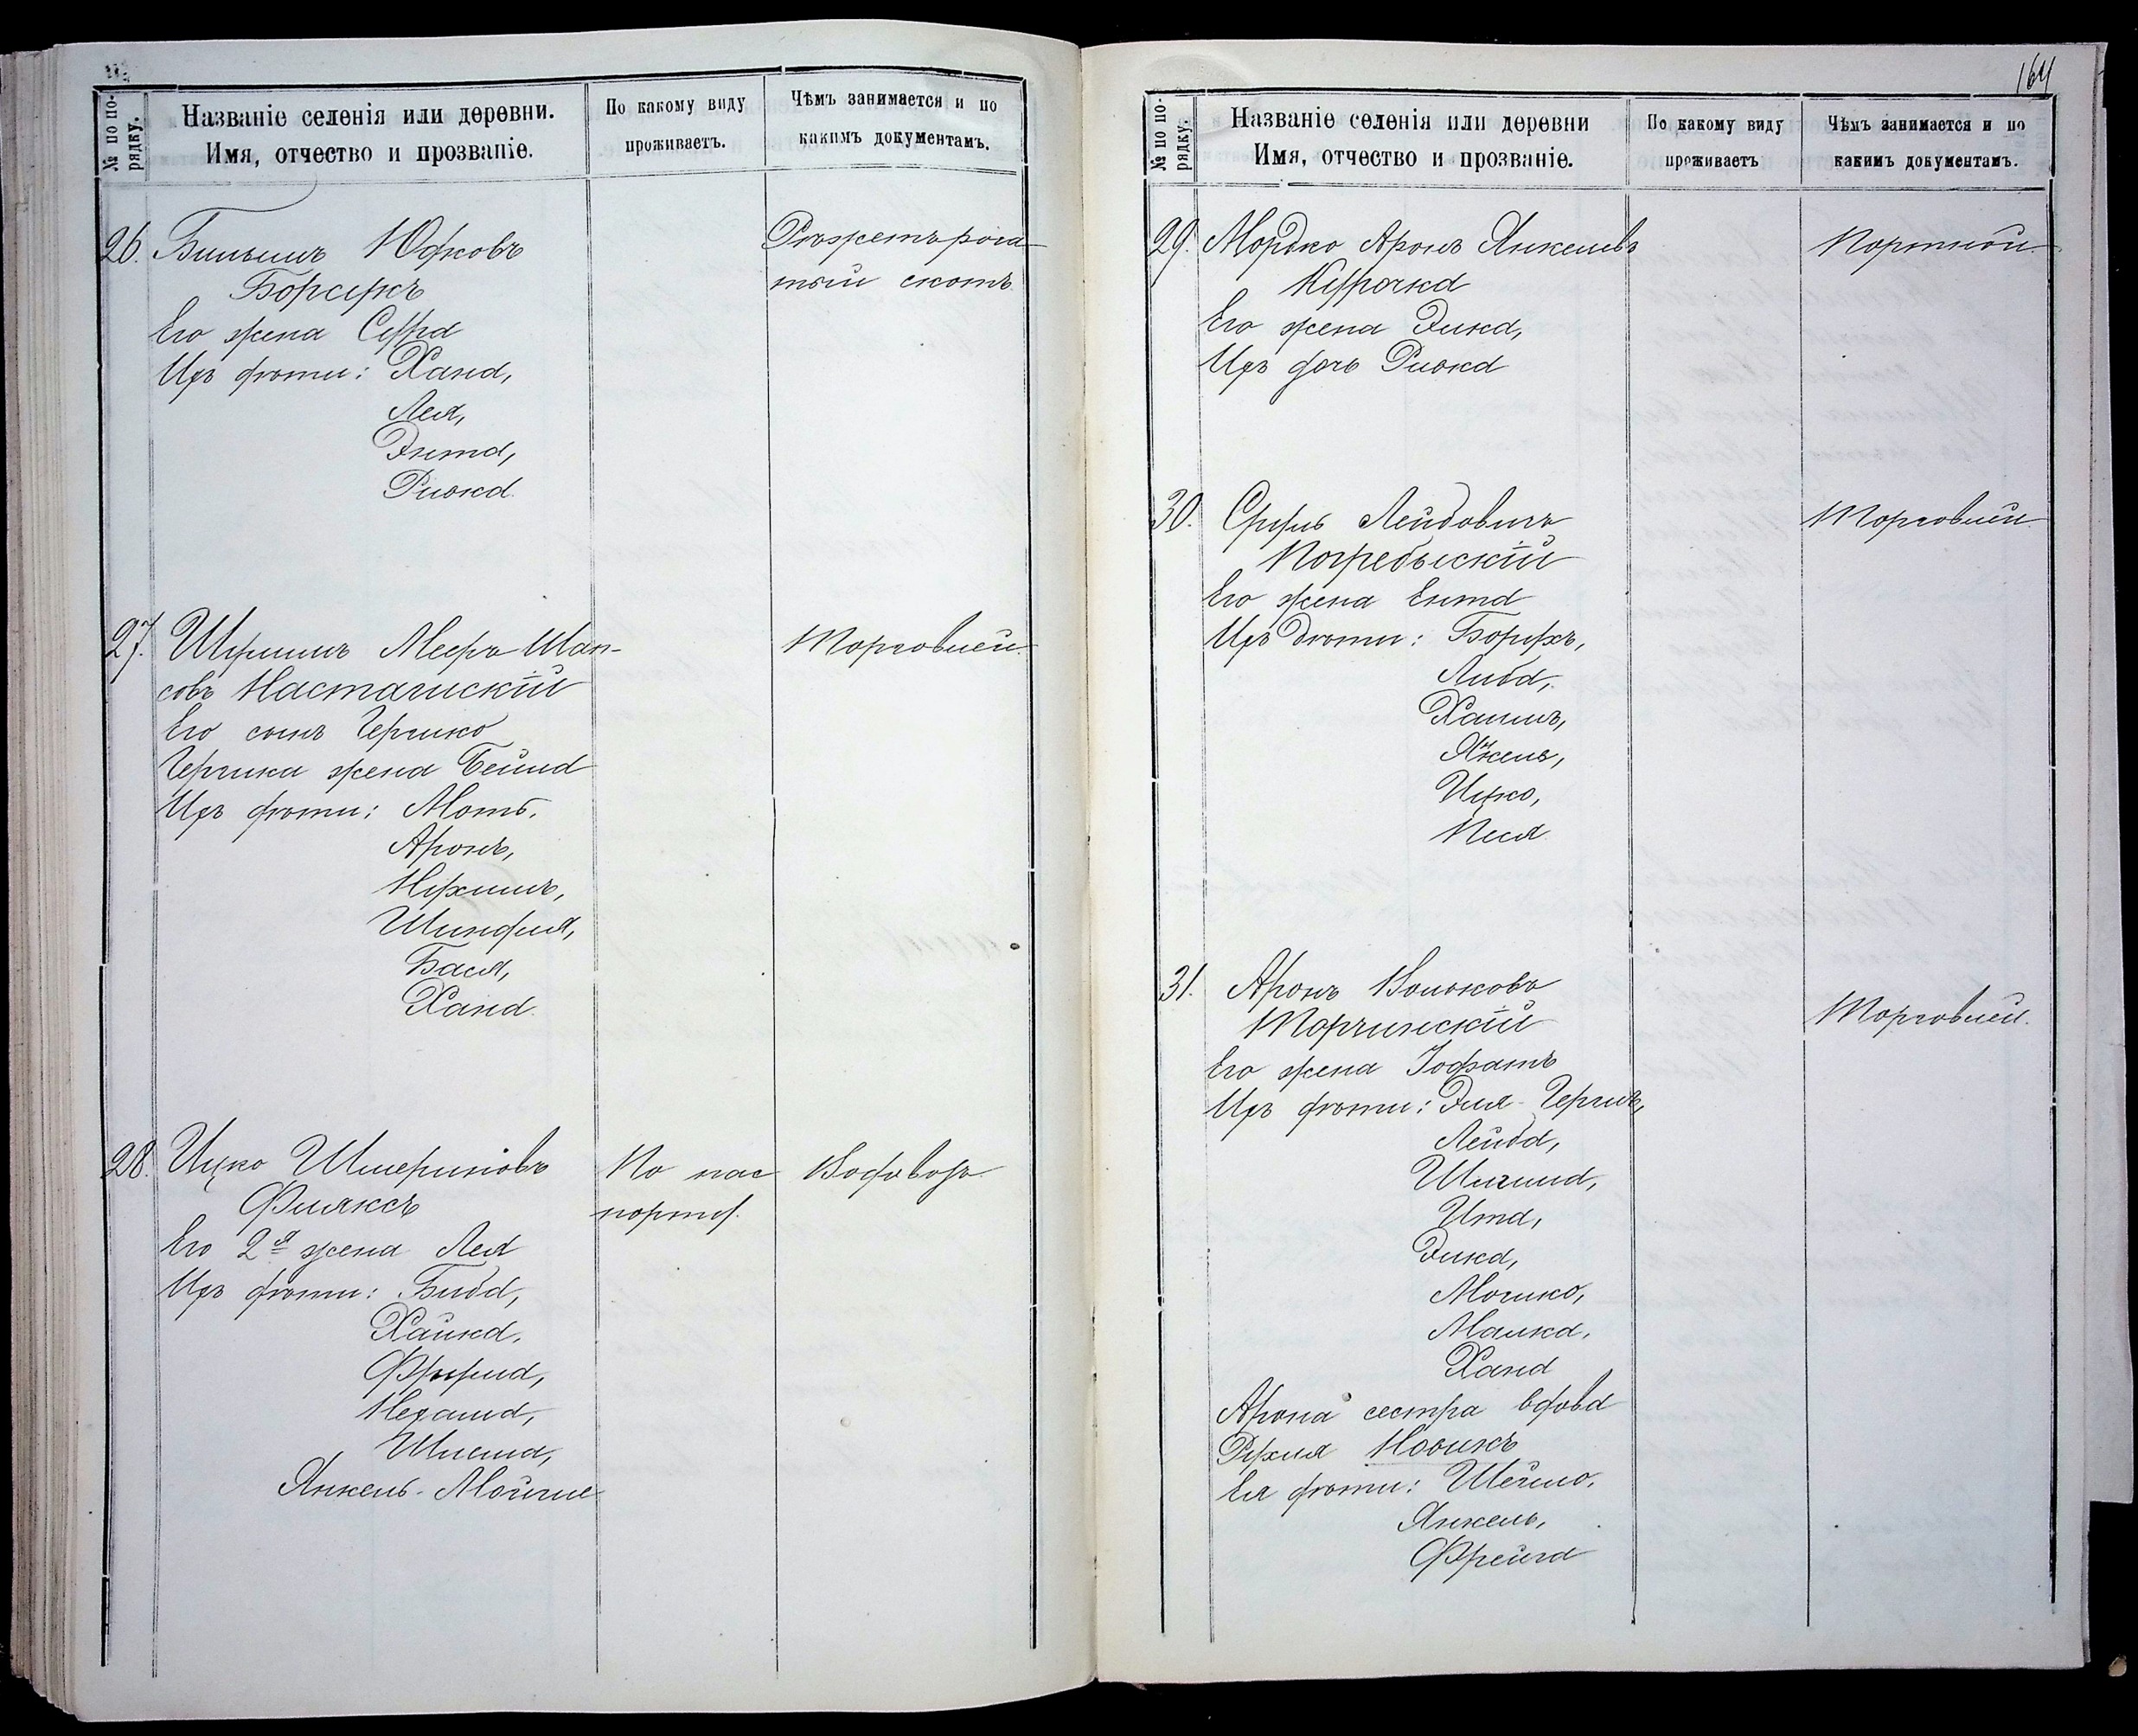 № по по-
рядку.
Названіе селенія или деревни.
Имя, отчество и прозваніе.
По какому виду
проживаетъ.
Чѣмъ занимается и по
какимъ документамъ.
26. Биньомъ Юдковъ
Борсукъ
Его жена Сура
Ихъ дѣти: Хана,
Лея,
Энта,
Ривка.
Рѣжетъ рога-
тый скотъ
27. Шулимъ Мееръ Шап-
совъ
Его сынъ Гершко
Гершка жена Бейла
Ихъ дѣти: Моть,
Аронъ,
Нухимъ,
Шиндля,
Бася,
Хана.
Торговлей.
28. Ицко Шмериковъ
Фляксъ
Его 2я жена Лея
Ихъ дѣти: Биба,
Хайка,
Фрума,
Нехама,
Шлема,
Янкель-Мойше
По пас
порту.
Водовозъ.
164
№ по по-
рядку.
Названіе селенія или деревни
Имя, отчество и прозваніе.
По какому виду
проживаетъ
Чѣмъ занимается и по
какимъ документамъ.
29. Мордко Аронъ Янкелевъ
Курочка
Его жена Элка,
Ихъ дочь Ривка
Портной.
30. Сруль Лейбовичъ
Погребыскій
Его жена Ента
Ихъ дѣти: Борухъ,
Либа,
Хаимъ,
Янкель,
Ицко,
Песя
Торговлей.
31. Аронъ Вольковъ
Торчинскій
Его жена
Ихъ дѣти: Эля-Гершъ,
Лейба,
Ита,
Элка,
Мошко,
Малка,
Хана
Арона сестра вдова
Рухля Новикъ
Ея дѣти: Шейло,
Янкель,
Фрейда
Торговлей.